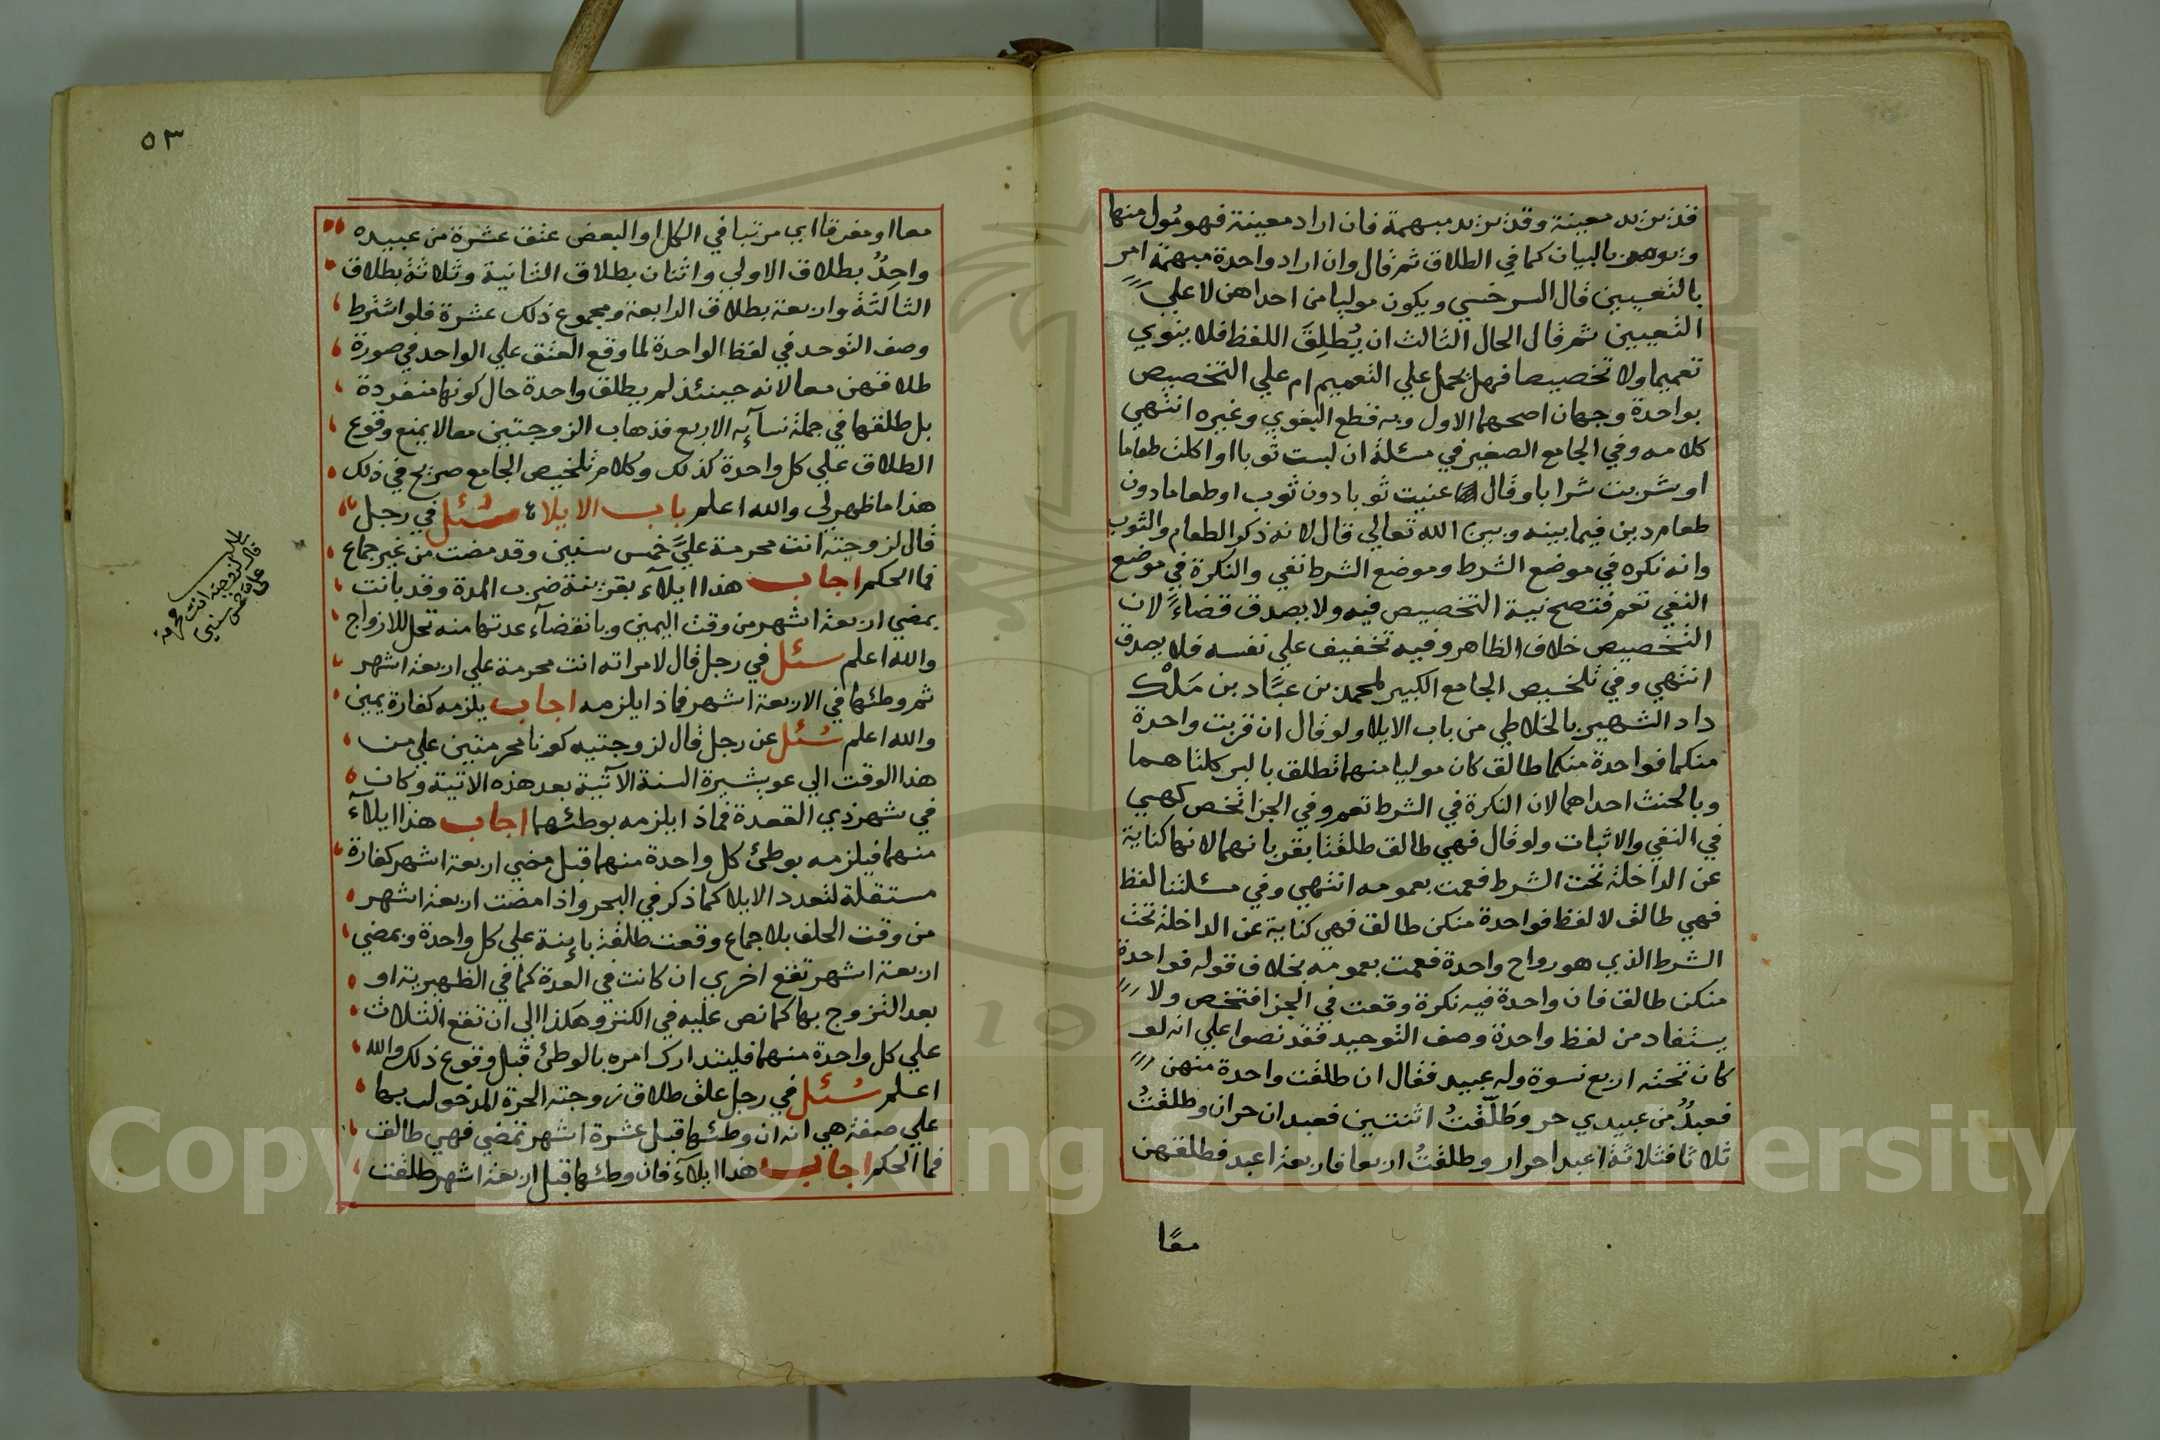 قد يريد معينة وقد يريد مبهمة فان اراد معينة فهو مُول منها
ويومر بالبيان كما في الطلاق ثم قال وان اراد واحدة مبهمة امر
بالتعيين قال السرخسي ويكون موليا من احداهن لا علي
التعيين ثم قال الحال الثالث ان يُطلِقَ اللفظ فلا ينوي
تعميما ولا تخصيصا فهل يحمل علي التعميم ام علي التخصيص
بواحدة وجهان اصحهما الاول وبه قطع البغوي وغيره انتهي
كلامه وفي الجامع الصغير في مسئلة ان لبست ثوبا او اكلت طعاما
او شربت شرابا وقال عنيت ثوبا دون ثوب او طعاما دون
طعام دين فيما بينه وبين الله تعالي قال لانه ذكر الطعام والثوب
وانه نكره في موضع الشرط وموضع الشرط نفي والنكرة في موضع
النفي تعم فتصح نية التخصيص فيه ولا يصدق قضاءً لان
التخصيص خلاف الظاهر وفيه تخفيف علي نفسه فلا يصدق
انتهي وفي تلخيص الجامع الكبير لمحمد بن عبَّاد بن مَلْك
داد الشهير بالخلاطي من باب الايلا ولو قال ان قربت واحدة
منكما فواحدة منكما طالق كان موليا منهما تطلق بالبر كلتاهما
وبالحنث احداهما لان النكرة في الشرط تعم وفي الجزا تخص كهي
في النفي والاثبات ولو قال فهي طالق طلقتا بقربانهما لانها كناية
عن الداخلة تحت الشرط فعمت بعمومه انتهي وفي مسئلتنا لفظ
فهي طالق لا لفظ فواحدة منكن طالق فهي كناية عن الداخلة تحت
الشرط الذي هو رواح واحدة فعمت بعمومه بخلاف قوله فواحدة
منكن طالق فان واحدة فيه نكرة وقعت في الجزا فتخص ولا
يستفاد من لفظ واحدة وصف التوحيد فقد نصوا علي انه لو
كان تحته اربع نسوة وله عبيد فقال ان طلقت واحدة منهن
فعبدٌ من عبيدي حر وطَلّقتُ اثنتين فعبدان حران وطلقتُ
ثلاثا فثلاثة اعبد احرار وطلقتُ اربعا فاربعة اعبد فطلقهن
معًا
٥٣
معا او مفرقا اي مرتبا في الكل او البعض عتق عشرة من عبيده
واحِدٌ بطلاق الاولي واثنان بطلاق الثانية وثلاثة بطلاق
الثالثة واربعة بطلاق الرابعة ومجموع ذلك عشرة فلو اشترط
وصف التوحد في لفظ الواحدة لما وقع العتق علي الواحد في صورة
طلاقهن معا لانه حينئذ لم يطلق واحدة حال كونها منفردة
بل طلقها في جملة نسآئه الاربع فذهاب الزوجتين معا لا يمنع وقوع
الطلاق علي كل واحدة كذلك وكلام تلخيص الجامع صريح في ذلك
هذا ما ظهر لي والله اعلم باب الايلاء سُئل في رجل
قال لزوجته انت محرمة عليَّ خمس سنين وقد مضت من غير جماع
فما الحكم اجاب هذا ايلآء بقرينة ضرب المدة وقد بانت
بمضي اربعة اشهر من وقت اليمين وبانقضآء عدتها منه تحل للازواج
والله اعلم سئل في رجل قال لامراته انت محرمة علي اربعة اشهر
ثم وطئها في الاربعة اشهر فماذا يلزمه اجاب يلزمه كفارة يمين
والله اعلم سُئل عن رجل قال لزوجتيه كونا محرمتين علي من
هذا الوقت الي عويشيرة السنة الآتية بعد هذه الاتية وكان
في شهر ذي القعدة فماذا يلزمه بوطئهما اجاب هذا ايلآء
منهما فيلزمه بوطئ كل واحدة منهما قبل مضي اربعة اشهر كفارة
مستقلة لتعدد الايلا كما ذكر في البحر واذا مضت اربعة اشهر
من وقت الحلف بلا جماع وقعت طلقة بائنة علي كل واحدة وبمضي
اربعة اشهر تقع اخري ان كانت في العدة كما في الظهيرية او
بعد التزوج بها كما نص عليه في الكنز وهكذا الي ان تقع الثلاث
علي كل واحدة منهما فليتدارك امره بالوطئ قبل وقوع ذلك والله
اعلم سُئل في رجل علق طلاق زوجته الحرة المدخول بها
علي صفة هي انه ان وطئها قبل عشرة اشهر تمضي فهي طالق
فما الحكم اجاب هذا ايلآء فان وطئها قبل اربعة اشهر طلقت
قال لزوجته انت محرمة
علي خمس سنين
Copyright © King Saud University